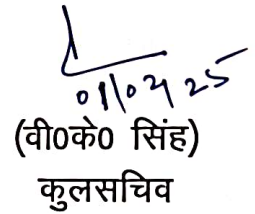 01/02/25
(वी0के0 सिंह)
कुलसचिव